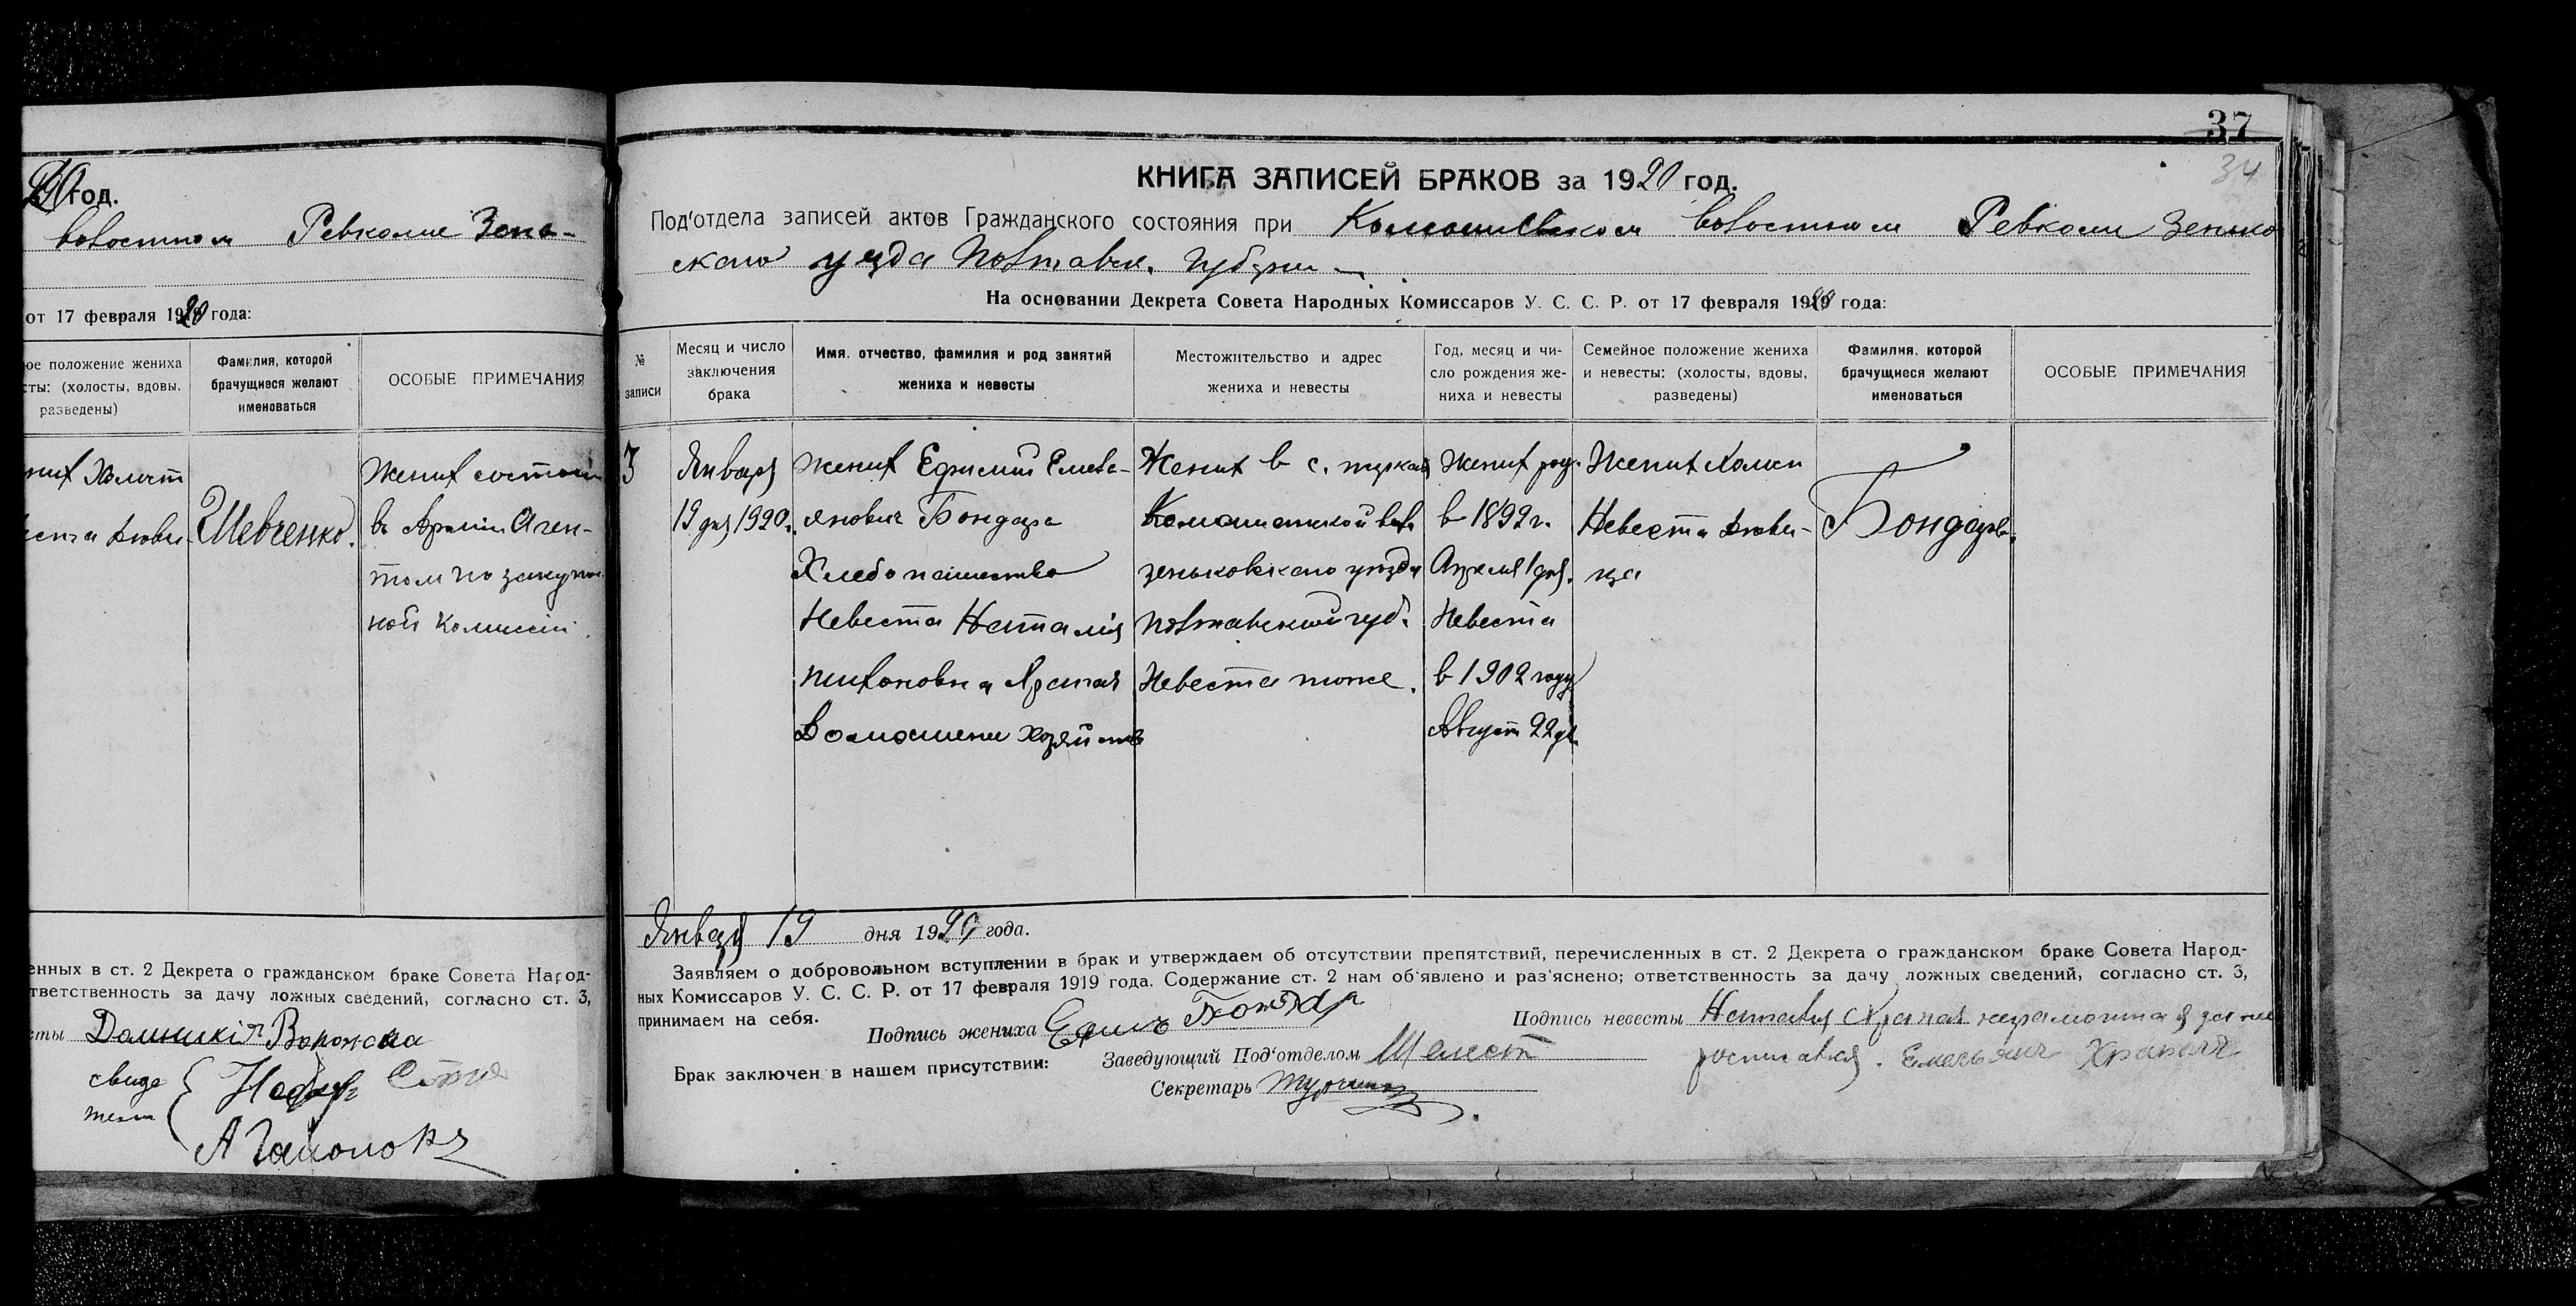 год.
волостном Ревкоме Зень-
от 17 февраля 1920 года:
ое положение жениха
сты: (холосты, вдовы,
разведены)
Фамилия, которой
брачущиеся желают
именоваться
ОСОБЫЕ ПРИМЕЧАНИЯ
них Холост
Шевченко.
Жених состоит
въ Армии Аген-
том по закупоч
ной Комиссіи.
енных в ст. 2 Декрета о гражданском браке Совета Народ-
тветственность за дачу ложных сведений, согласно ст. 3,
сты Домникія
свиде
тели
37
34
КНИГА ЗАПИСЕЙ БРАКОВ за 1920 год.
Под'отдела записей актов Гражданского состояния при волостном Ревкоме Зенько
ского уезда Полтавск. Губернии
На основании Декрета Совета Народных Комиссаров У. С. С. Р. от 17 февраля 1919 года:
№
записи
Месяц и число
заключения
брака
Имя, отчество, фамилия и род занятий
жениха и невесты
Местожительство и адрес
жениха и невесты
Год, месяц и чи-
сло рождения же-
ниха и невесты
Семейное положение жениха
и невесты: (холосты, вдовы,
разведены)
Фамилия, которой
брачущиеся желают
именоваться
ОСОБЫЕ ПРИМЕЧАНИЯ
3
Января
19 дня 1920г.
Жених Ефимий Емель-
янович Бондарь
Хлебопашество
Невеста Наталія
Тихоновна Храпач
Домошени хозяйств
Жених в с.
вол.
зеньковского уезда
полтавской губ.
Невеста тоже.
Жених род.
в 1892 г.
Апреля 1 дня.
Невеста
в 1902 году
Август 22 дн.
Жених Холост
Невеста Деви-
ца
Бондарь.
Января 19 дня 1920 года.
Заявляем о добровольном вступлении в брак и утверждаем об отсутствии препятствий, перечисленных в ст. 2 Декрета о гражданском браке Совета Народ-
ных Комиссаров У. С. С. Р. от 17 февраля 1919 года. Содержание ст. 2 нам об'явлено и раз'яснено; ответственность за дачу ложных сведений, согласно ст. 3,
принимаем на себя.
Подпись жениха Бондар
Подпись невесты Наталія Храпач неграмотная
росписался. Емельянъ Храпачъ
Брак заключен в нашем присутствии:
Заведующий Под'отделом Шелест
Секретарь